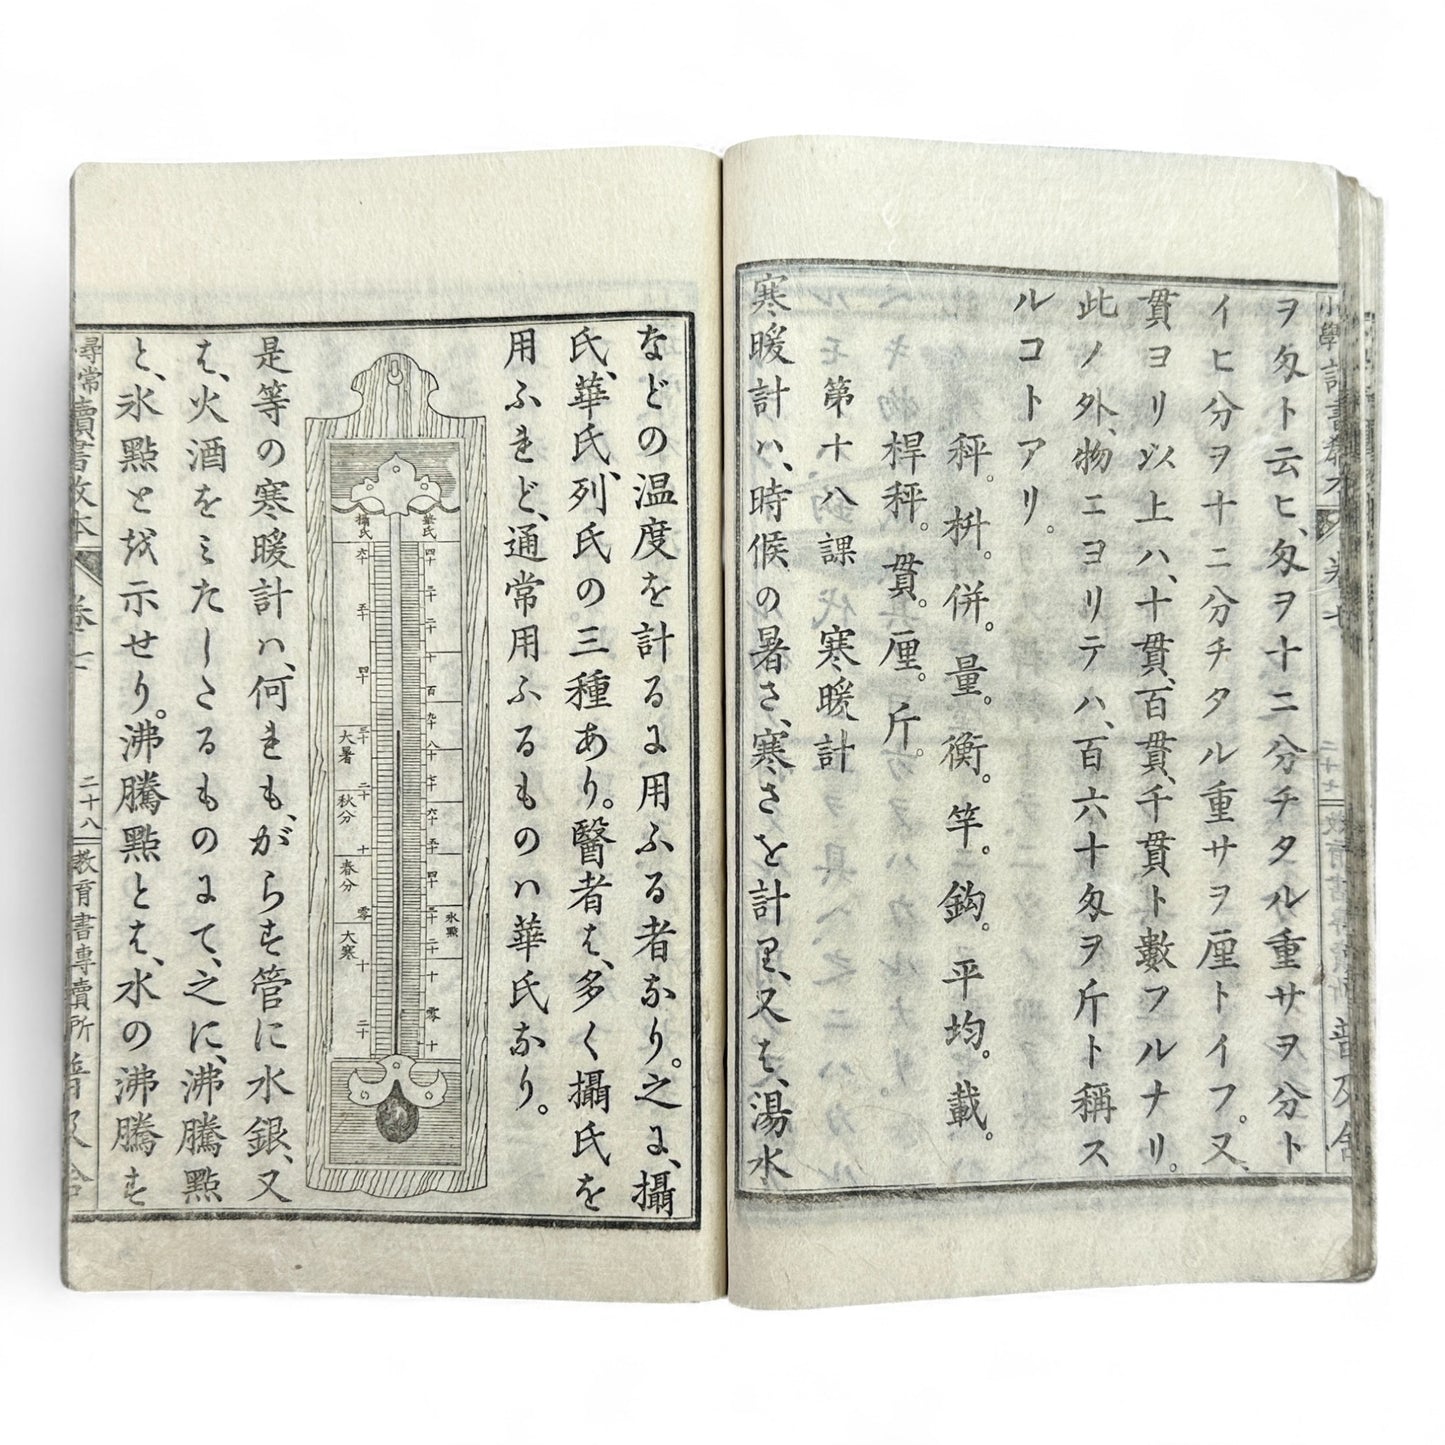 ヲ匁ト云ヒ、匁ヲ十ニ分チタル重サヲ分ト
イヒ分ヲ十ニ分チタル重サヲ厘トイフ。又、
貫ヨリ以上ハ、十貫、百貫、千貫ト數フルナリ。
此ノ外、物ニヨリテハ、百六十匁ヲ斤ト稱ス
ルコトアリ。
秤。枡。併。量。衡。竿。鈎。平均。載。
桿秤。貫。厘。斤。
第十八課 寒暖計
寒暖計ハ、時候の暑さ、寒さを計り、又は、湯水
などの温度を計るに用ふる者なり。之に、攝
氏、華氏、列氏の三種あり。醫者は、多く攝氏を
用ふれど、通常用ふるものハ華氏なり。
華氏
攝氏
四十
三十
二十
十
百
九十
八十
七十
六十
五十
四十
三十
氷點
二十
十
零
十
六十
五十
四十
三十
大暑
二十
秋分
十
春分
零
大寒
十
二十
是等の寒暖計ハ、何れも、がらす管に水銀、又
は、火酒をみたしたるものにて、之に、沸騰點
と、氷點とを示せり。沸騰點とは、水の沸騰す
尋常讀書教本
卷七
二十八
教育書專賣所 普及舍